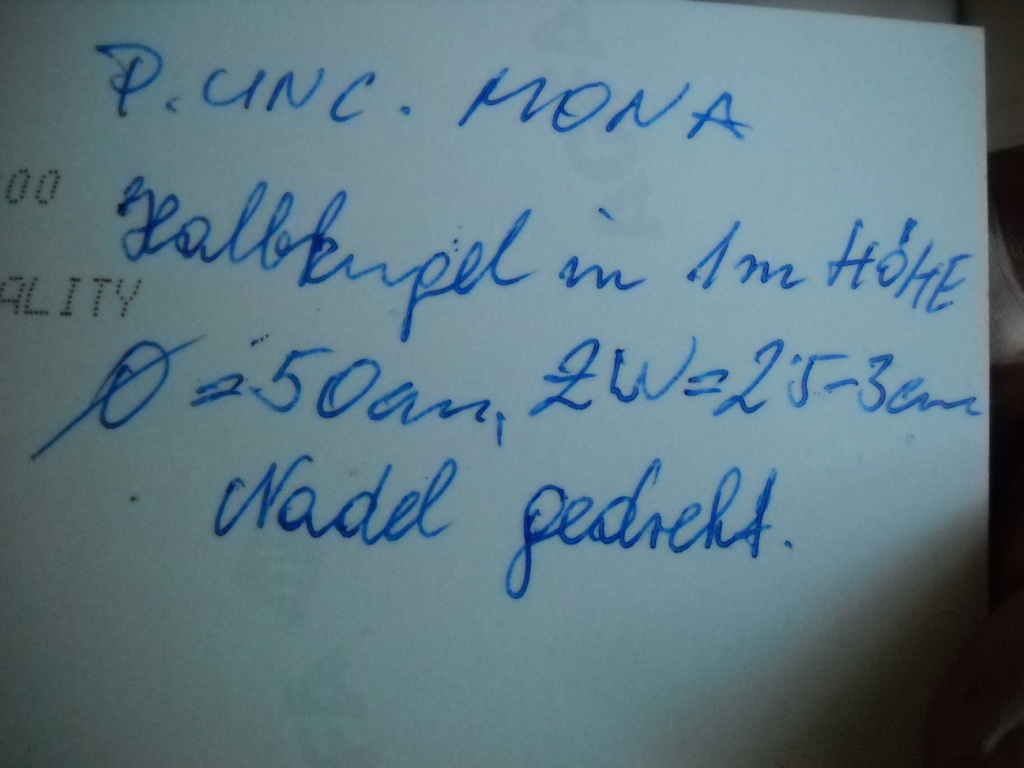 P. UNC. MONA
00
Halbkugel in 1m HÖHE
ALITY
Ø = 50cm, ZW = 2,5-3cm
Nadel gedreht.